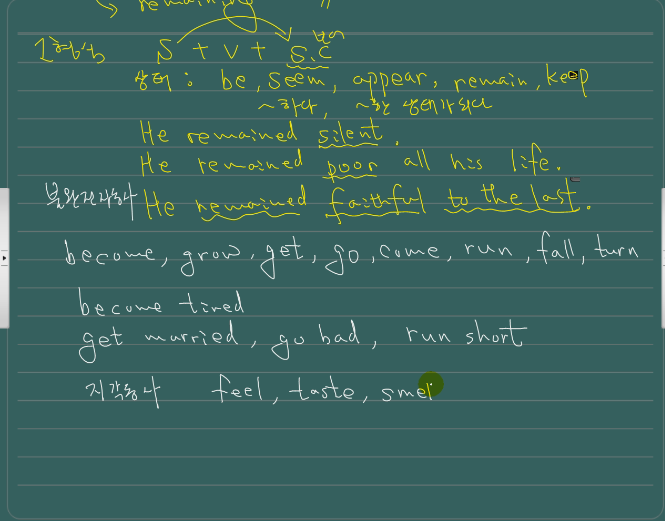 remaining 〃
2형식 S + V + S.C 보어
상태 : be, seem, appear, remain, keep
~하다, ~한 상태가 되다
He remained silent.
He remained poor all his life.
불완전자동사 He remained faithful to the last.
become, grow, get, go, come, run, fall, turn
become tired
get married, go bad, run short
지각동사 feel, taste, smel